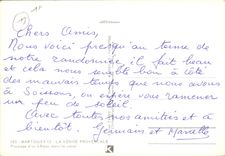 Chers Amis,
Nous voici presqu'au terme de
notre randonnée, il fait beau
et cela nous semble bon à côté
des mauvais temps que nous avons
à Soissons, on espère vous ramener
un peu de soleil.
Avec toutes nos amitiés et à
bientôt. Germain et Marcelle
MARTIGUES
LA VENISE PROVENÇALE